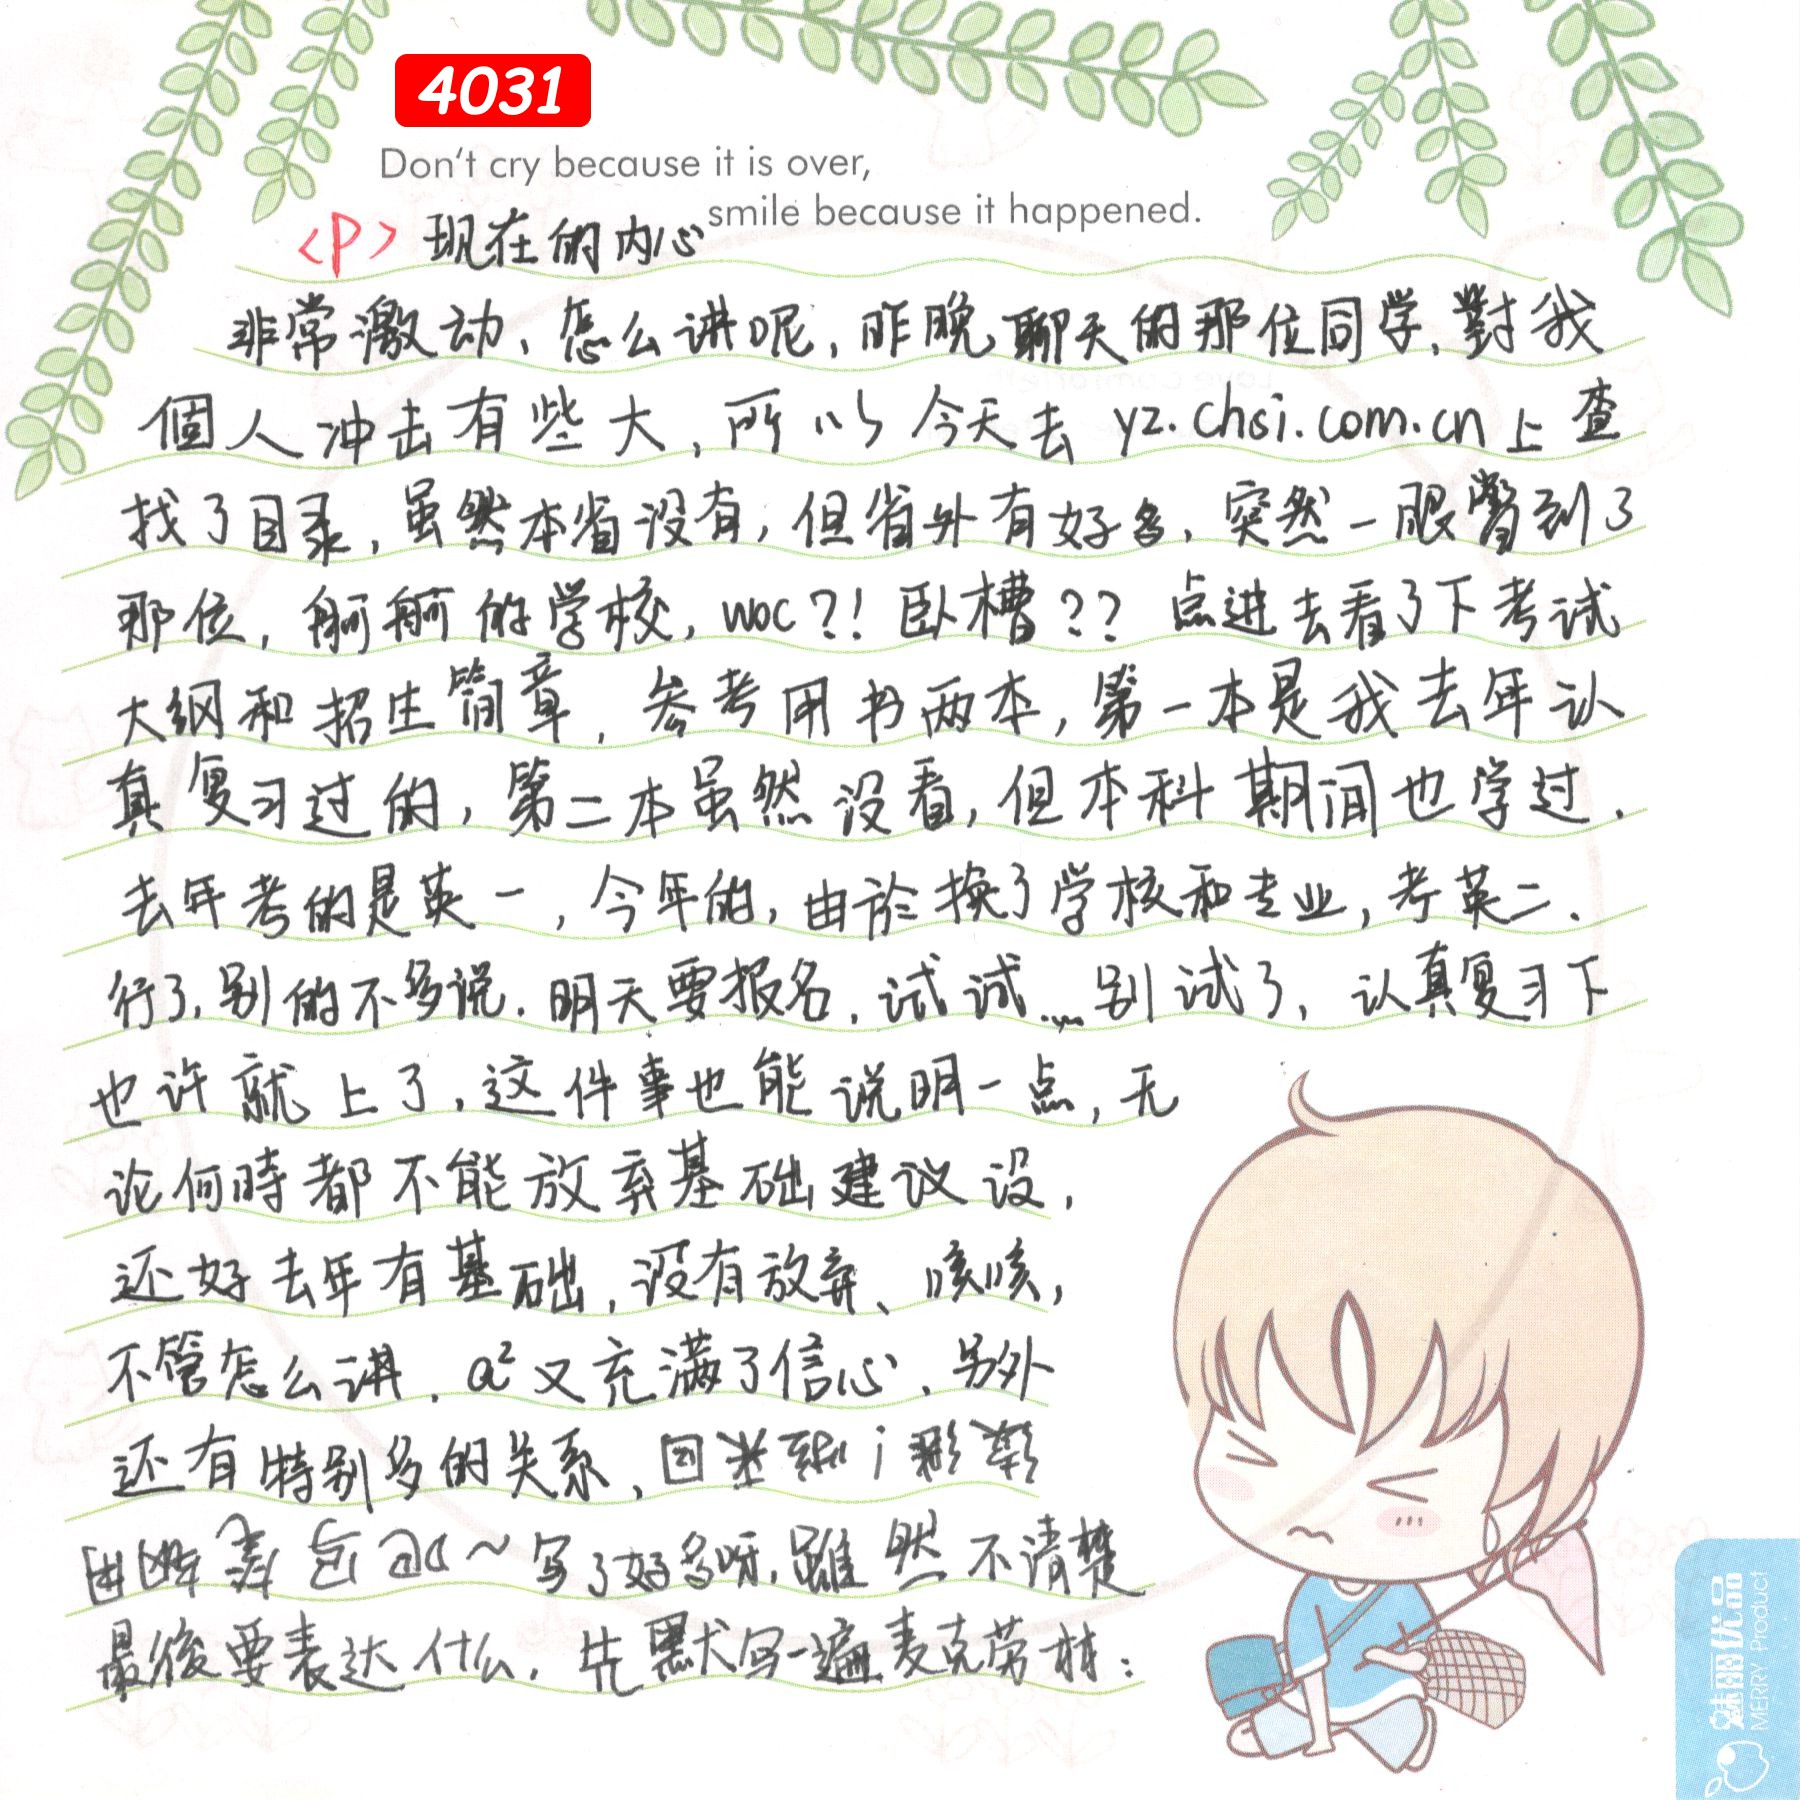 4031
Don't cry because it is over,
smile because it happened.
<P> 现在的内心
非常激动、怎么讲呢，昨晚聊天的那位同学，對我
個人冲击有些大，所以今天去 yz.chsi.com.cn 上查
找了目录，虽然本省没有，但省外有好多，突然一眼瞥到了
那位，舸舸的学校，woc?！卧槽？？点进去看了下考试
大纲和招生简章，参考用书两本，第一本是我去年认
真复习过的，第二本虽然没看，但本科期间也学过．
去年考的是英一，今年的，由於换了学校和专业，考英二．
行了，别的不多说．明天要报名，试试……别试了，认真复习下
也许就上了，这件事也能说明一点，无
论何時都不能放弃基础建议设，
还好去年有基础，没有放弃、咳咳，
不管怎么讲，a² 又充满了信心，另外
还有特别多的关系，
～写了好多呀，雖然不清楚
最後要表达什么，先默写一遍麦克劳林：
魅丽优品
MERRY Product